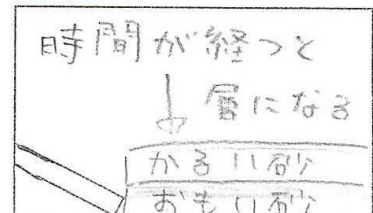 時間が経つと
層になる
かるい砂
おもい砂